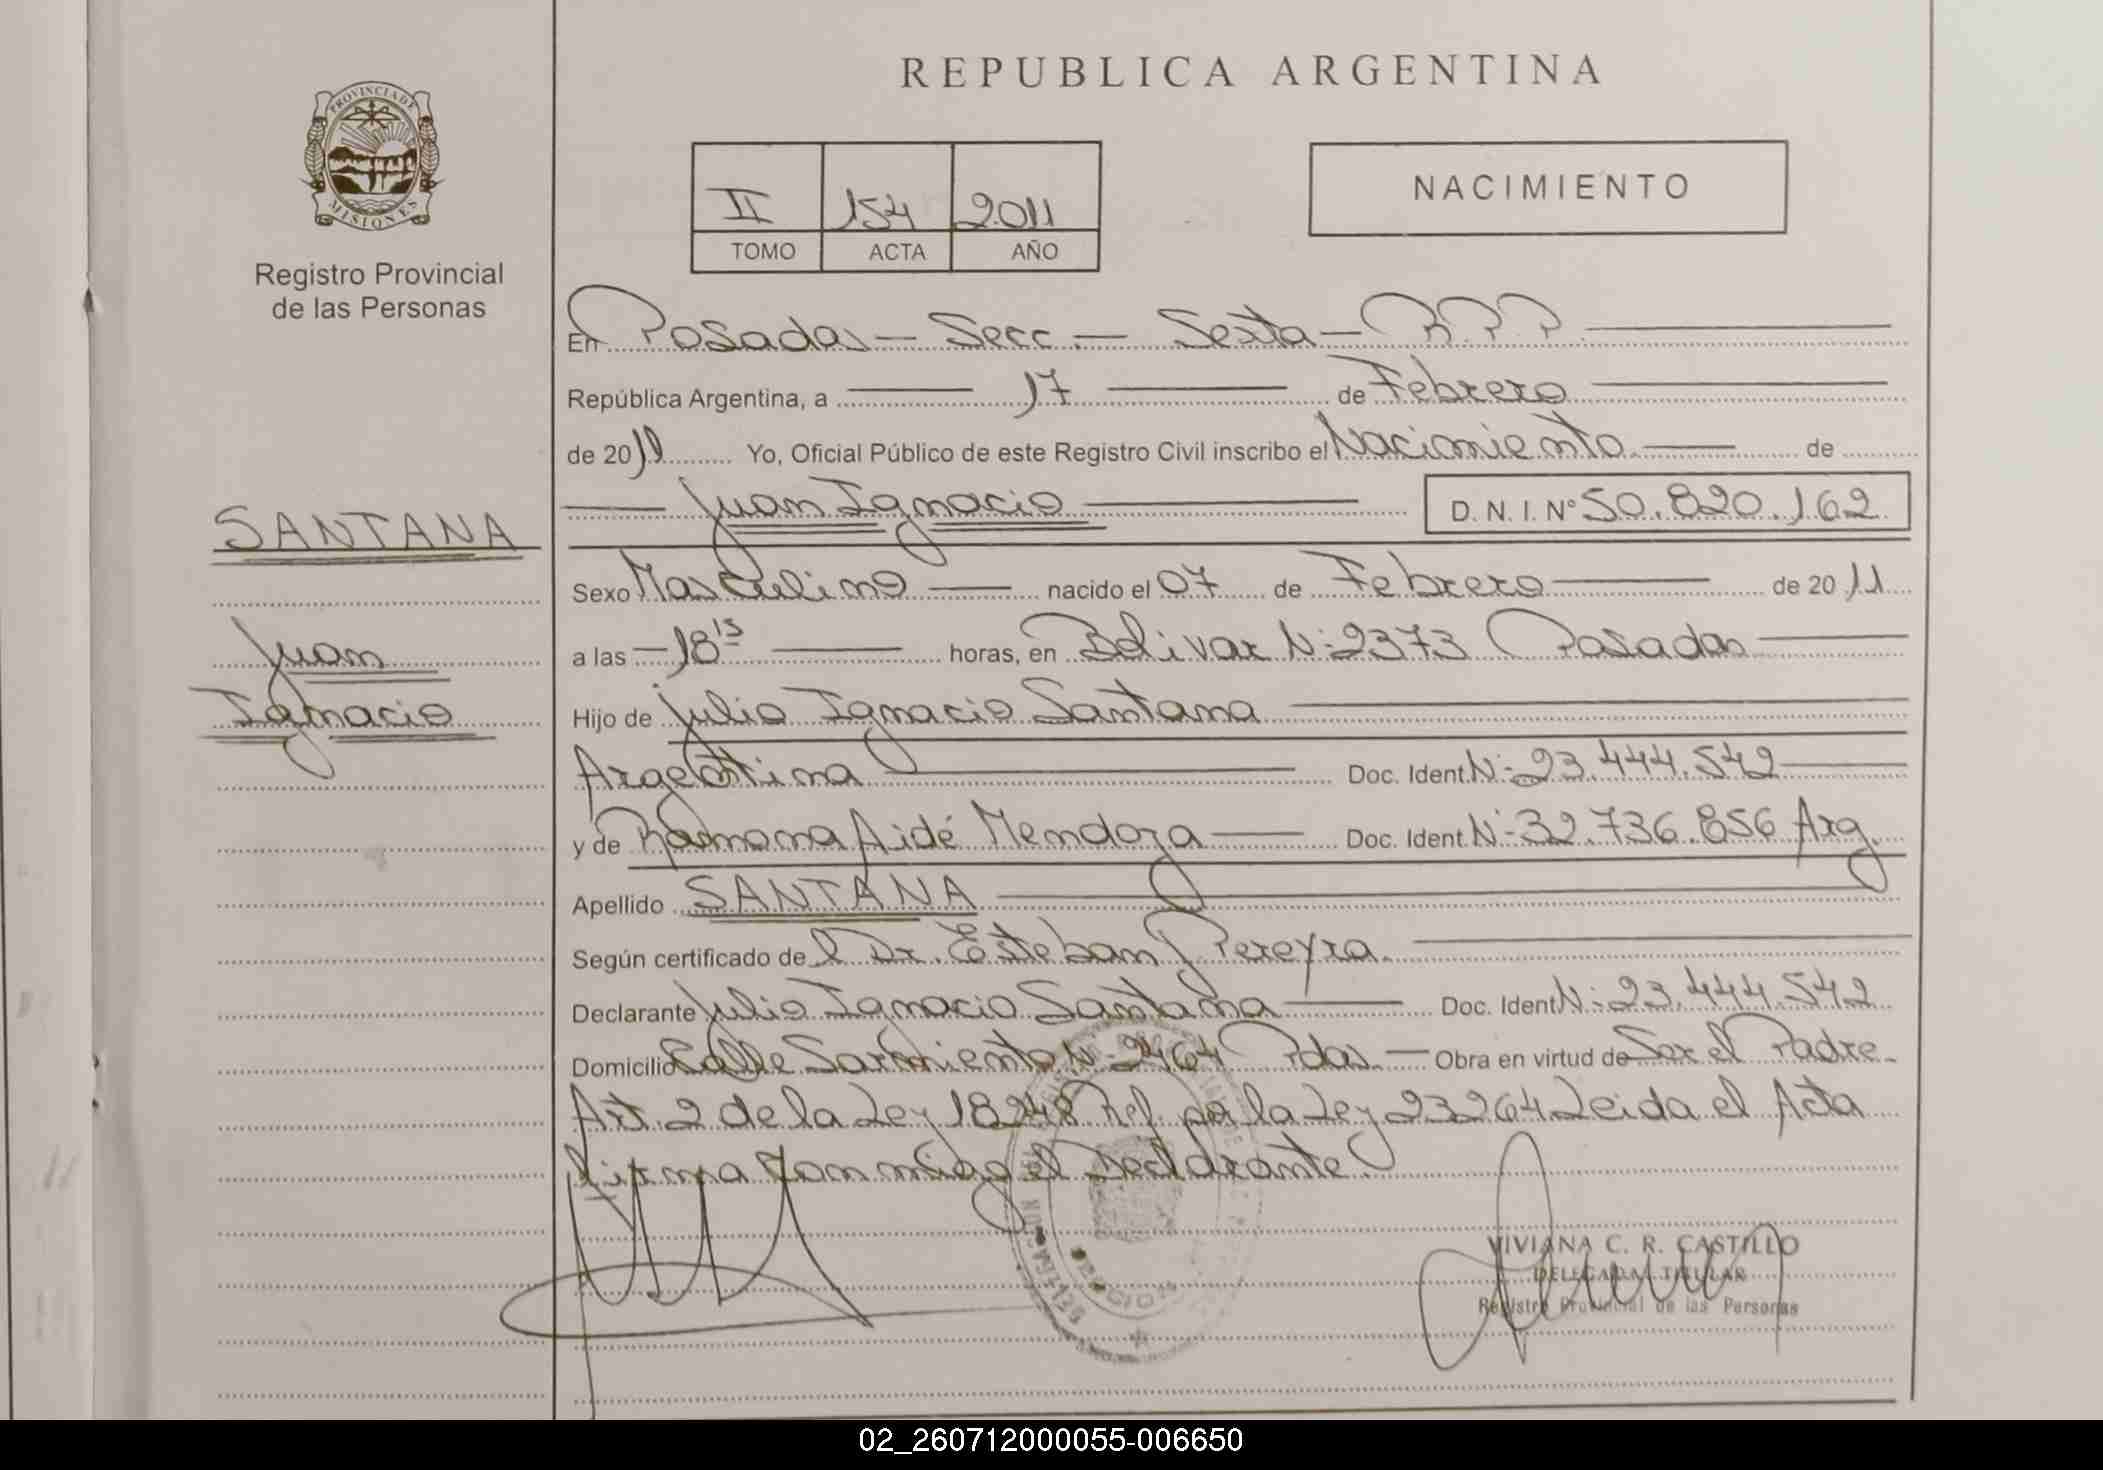 REPUBLICA ARGENTINA
PROVINCIA DE
MISIONES
Registro Provincial
de las Personas
II 154 2011
TOMO ACTA AÑO
NACIMIENTO
En Posadas - Secc. - Sexta - R.P.P.
República Argentina, a 17 de Febrero
de 2011 Yo, Oficial Público de este Registro Civil inscribo el Nacimiento de
Juan Ignacio D.N.I. Nº 50.820.162
SANTANA
Juan
Ignacio
Sexo Masculino nacido el 07 de Febrero de 2011
a las 18 15 horas, en Bolivar Nº 2373 Posadas
Hijo de Julio Ignacio Santana
Argentina Doc. Ident. Nº 23.444.542
y de Ramona Aidé Mendoza Doc. Ident. Nº 32.736.856 Arg.
Apellido SANTANA
Según certificado del Dr. Esteban Pereyra.
Declarante Julio Ignacio Santana Doc. Ident. Nº 23.444.542
Domicilio Calle Sarmiento Nº 2464 Pdas. Obra en virtud de Ser el Padre -
Art. 2 de la Ley 18248 Ref. por la Ley 23264 Leida el Acta
firma conmigo el Declarante.
VIVIANA C. R. CASTILLO
DELEGADA TITULAR
Registro Provincial de las Personas
02_260712000055-006650